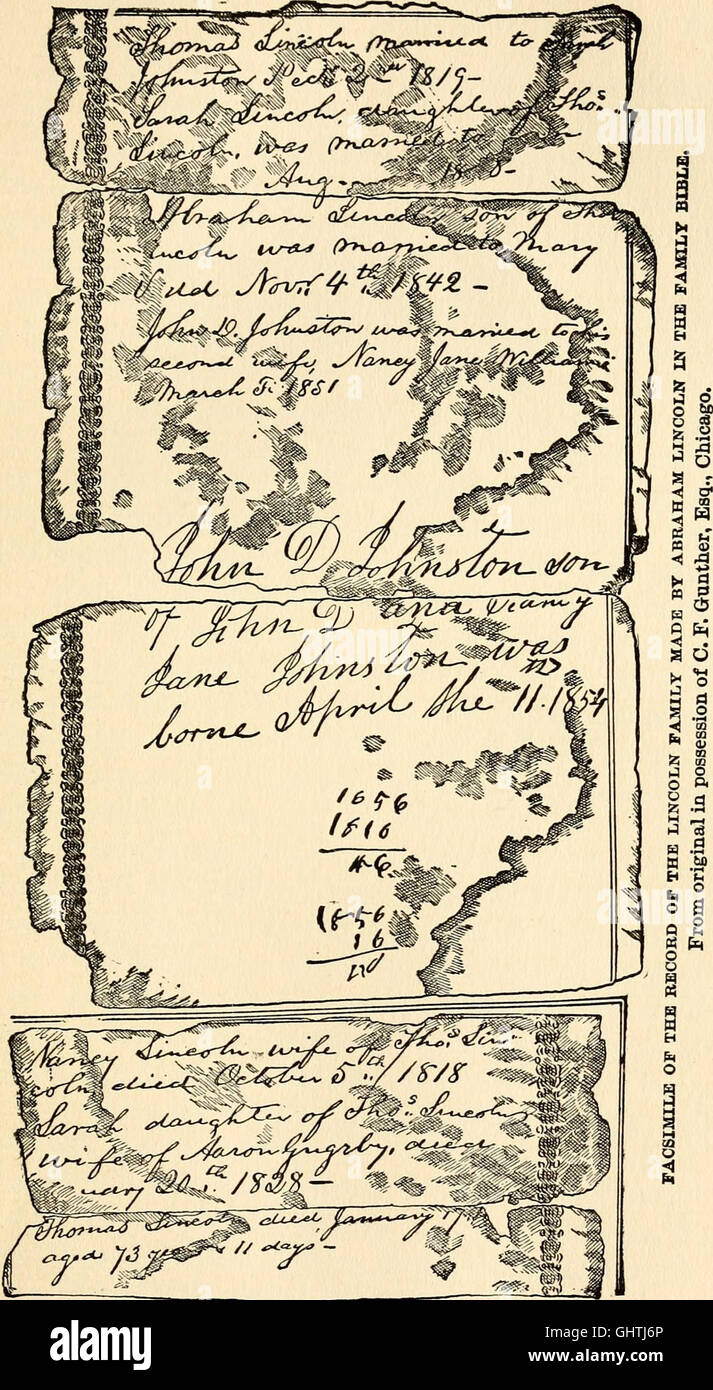 Thomas Lincoln married to Sarah
Johnston Decr 2nd 1819-
Sarah Lincoln, daughter of Thos.
Lincoln, was married to
Aug. 18 -
Abraham Lincoln son of Thos
incoln was married to Mary
dd Novr. 4th, 1842-
John D. Johnston was married to his
second wife, Nancy Jane William
March 1851
John D Johnston son
of John D and Nancy
Jane Johnston was
borne April the 11. 1854
1856
1810
46
1856
16
Nancy Lincoln wife of Thos Lin
coln died October 5th, 1818
Sarah daughter of Thos. Lincoln,
wife of Aaron died
uary 20th, 1828-
Thomas Lincoln died January 17
aged 73 years 11 days-
FACSIMILE OF THE RECORD OF THE LINCOLN FAMILY MADE BY ABRAHAM LINCOLN IN THE FAMILY BIBLE.
From original in possession of C. F. Gunther, Esq., Chicago.
alamy
Image ID: GHTJ6P
www.alamy.com